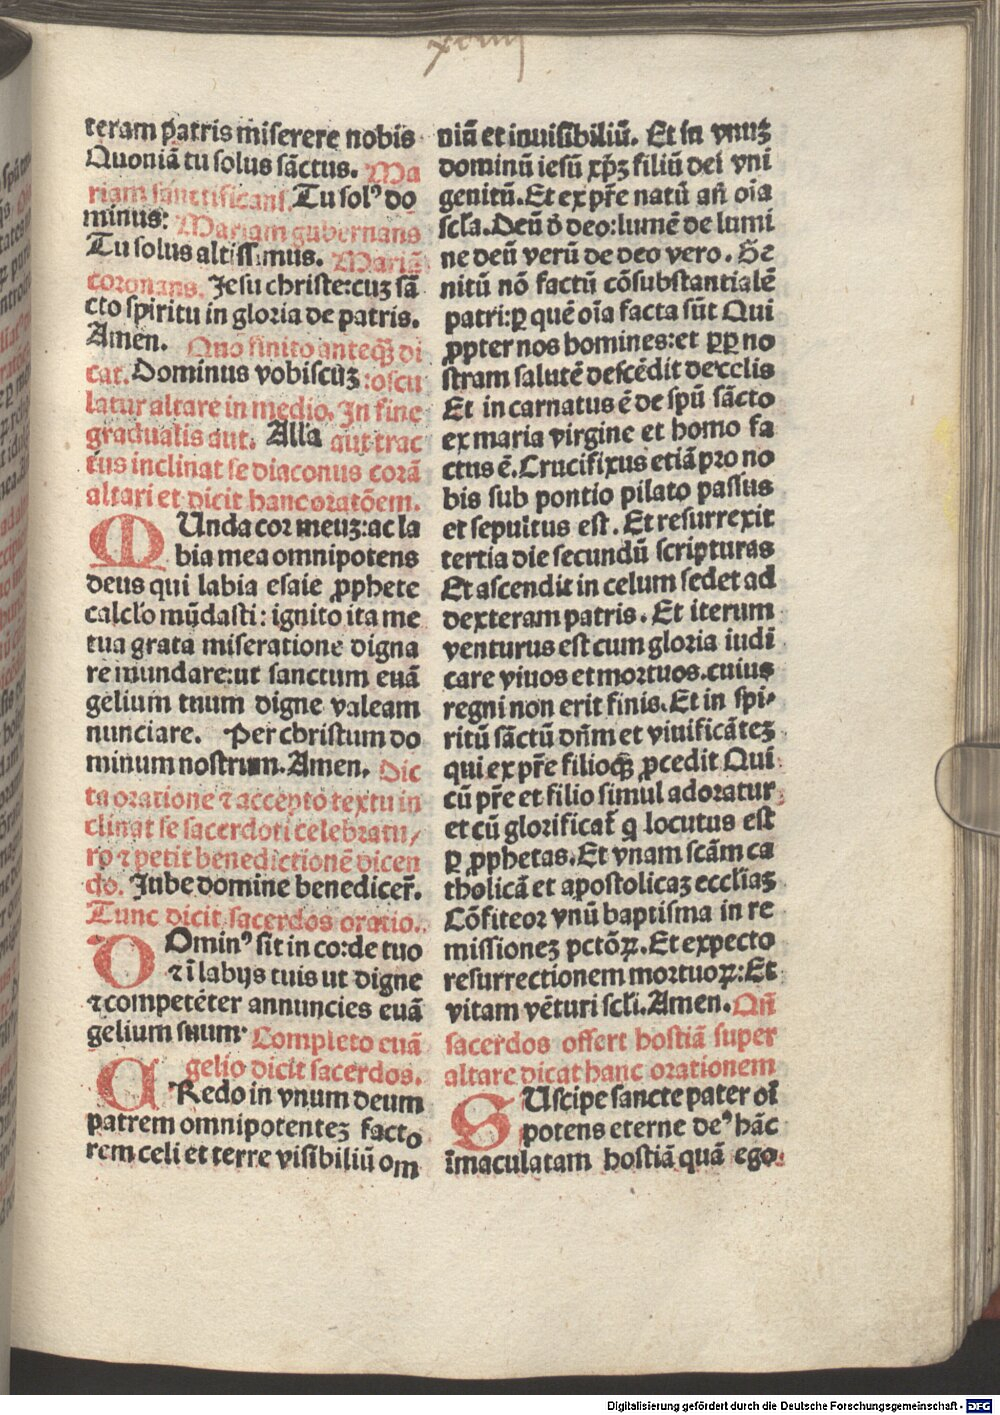 xviiij
teram patris miserere nobis
Quoniā tu solus sāctus. Ma
riam sanctificans. Tu solꝰ do
minus: Mariam gubernans
Tu solus altissimus. Mariā
coronans. Jesu christe:cuȝ sā
cto spiritu in gloria de patris.
Amen. Quo finito anteqȝ di
cat. Dominus vobiscūȝ :oscu
latur altare in medio. In fine
gradualis aut. Alla aut trac
tus inclinat se diaconus corā
altari et dicit hanc oratōem.
MUnda cor meuȝ:ac la
bia mea omnipotens
deus qui labia esaie ꝓphete
calclo mūdasti: ignito ita me
tua grata miseratione digna
re mundare:ut sanctum euā
gelium tuum digne valeam
nunciare. Per christum do
minum nostrum. Amen. Dic
ta oratione ⁊ accepto textu in
clinat se sacerdoti celebratu/
ro ⁊ petit benedictionē dicen
do. Jube domine benedicer̄.
Tunc dicit sacerdos oratio.
DOminꝰ sit in corde tuo
⁊ ī labijs tuis ut digne
⁊ competēter annuncies euā
gelium suum· Completo euā
gelio dicit sacerdos.
CRedo in vnum deum
patrem omnipotenteȝ facto
rem celi et terre visibiliū om
niū et inuisibiliū. Et in vnuȝ
dominū iesū xp̄ȝ filiū dei vni
genitū. Et ex pr̄e natū an̄ oīa
scl̄a. Deū d̄ deo:lumē de lumi
ne deū verū de deo vero. Ge
nitū nō factū cōsubstantialē
patri:ꝑ quē oīa facta sūt Qui
ꝓpter nos homines:et ꝑꝑ no
stram salutē descēdit de celis
Et in carnatus ē de spū sācto
ex maria virgine et homo fa
ctus ē. Crucifixus etiā pro no
bis sub pontio pilato passus
et sepultus est. Et resurrexit
tertia die secundū scripturas
Et ascendit in celum sedet ad
dexteram patris. Et iterum
venturus est cum gloria iudi
care viuos et mortuos.cuius
regni non erit finis. Et in spi/
ritū sāctū dn̄m et viuificāteȝ
qui ex pr̄e filioqȝ ꝓcedit Qui
cū pr̄e et filio simul adoratur
et cū glorificat̄ q locutus est
ꝑ ꝓphetas. Et vnam scāam ca
tholicā et apostolicaȝ eccliaȝ
Cōfiteor vnū baptisma in re
missioneȝ pctōꝝ. Et expecto
resurrectionem mortuoꝝ:Et
vitam vēturi scli. Amen. Qn̄
sacerdos offert hostiā super
altare dicat hanc orationem
SUscipe sancte pater oī
potens eterne deꝰ hāc
īmaculatam hostiā quā ego
Digitalisierung gefördert durch die Deutsche Forschungsgemeinschaft - DFG